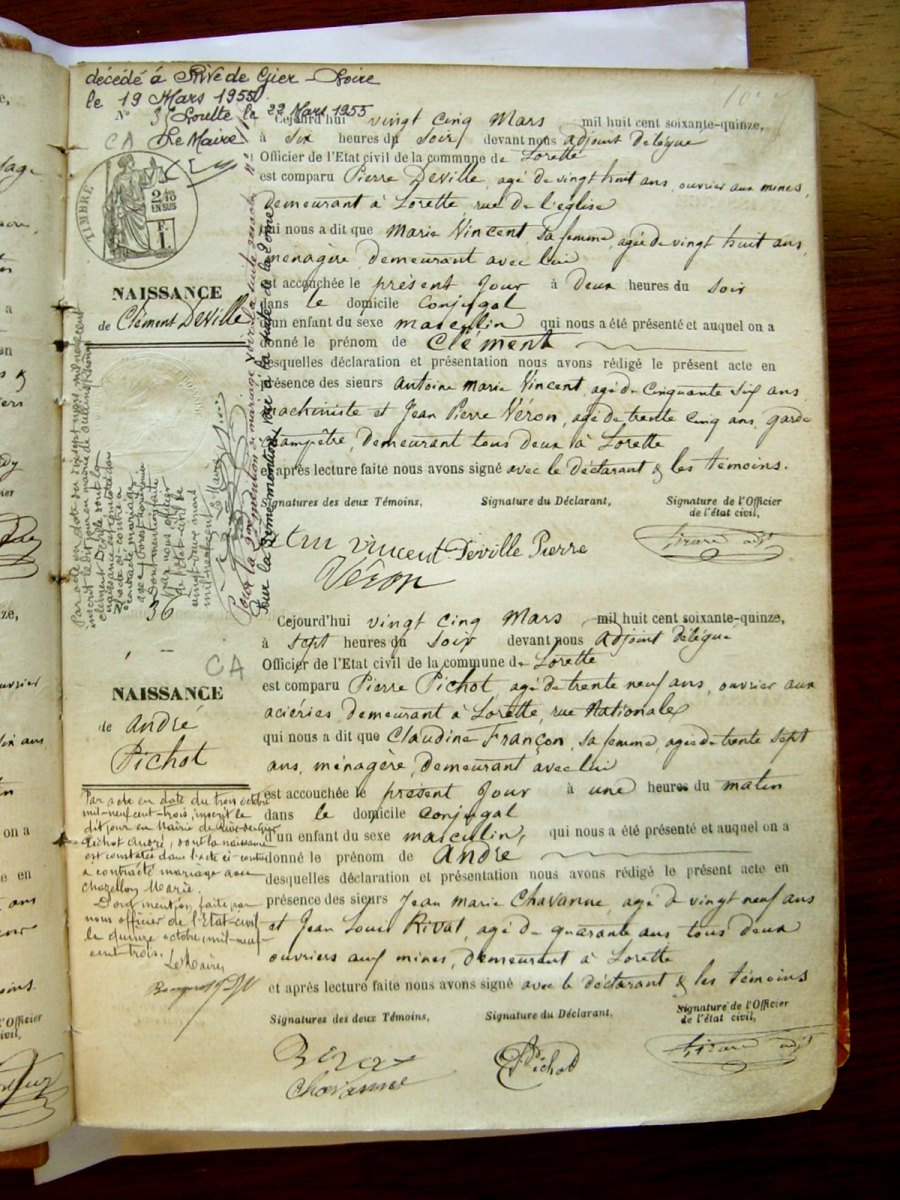 décédé à Rive de Gier - Loire
le 19 Mars 1955
Nº 35 Soulte le 22 Mars 1955
Le Maire
CA
TIMBRE
2/10
EN SUS
1 F.
NAISSANCE
de Clément Deville
Cejourd'hui vingt cinq Mars mil huit cent soixante-quinze,
à six heures du soir devant nous adjoint délégué
Officier de l'Etat civil de la commune de Lorette
est comparu Pierre Deville, agé de vingt huit ans, ouvrier aux mines,
demeurant à Lorette rue de l'église
qui nous a dit que Marie Vincent, sa femme, agée de vingt huit ans
ménagère, demeurant avec lui
est accouchée le présent jour à deux heures du soir
dans le domicile conjugal
d'un enfant du sexe masculin qui nous a été présenté et auquel on a
donné le prénom de Clément
desquelles déclaration et présentation nous avons rédigé le présent acte en
présence des sieurs Antoine Marie Vincent, agé de Cinquante six ans
machiniste et Jean Pierre Véron, agé de trente cinq ans, garde
champêtre, demeurant tous deux à Lorette
et après lecture faite nous avons signé avec le déclarant & les témoins.
Signatures des deux Témoins, Signature du Déclarant, Signature de l'Officier
de l'état civil,
vincent Deville Pierre Girard adjt
Véron
Par acte en date du dix sept mars mil neuf cent
inscrit le dit jour en mairie de
clément Deville, dont la
naissance est constatée dans
l'acte ci-contre a
contracté mariage
avec
Dont mention faite
par nous officier
de l'état-civil le
vingt-deux mars
mil-neuf-cent
Le Maire
Pour la 2me mention de mariage voir la suite
Pour la 3eme mention, voir la suite de la 2eme
Nº 36
CA
NAISSANCE
de André
Pichot
Cejourd'hui vingt cinq Mars mil huit cent soixante-quinze,
à sept heures du soir devant nous adjoint délégué
Officier de l'Etat civil de la commune de Lorette
est comparu Pierre Pichot, agé de trente neuf ans, ouvrier aux
aciéries, demeurant à Lorette, rue Nationale
qui nous a dit que Claudine Françon, sa femme, agée de trente sept
ans, ménagère, demeurant avec lui
est accouchée le présent jour à une heures du matin
dans le domicile conjugal
d'un enfant du sexe masculin, qui nous a été présenté et auquel on a
donné le prénom de André
desquelles déclaration et présentation nous avons rédigé le présent acte en
présence des sieurs Jean marie Chavanne, agé de vingt neuf ans
et Jean Louis Rival, agé de quarante ans tous deux
ouvriers aux mines, demeurant à Lorette
et après lecture faite nous avons signé avec le déclarant & les témoins
Signatures des deux Témoins, Signature du Déclarant, Signature de l'Officier
de l'état civil,
Pichot Girard adjt
Chavanne
Par acte en date du trois octobre
mil-neuf-cent-trois, inscrit le
dit jour en Mairie de Rive-de-Gier
Pichot André, dont la naissance
est constatée dans l'acte ci-contre
a contracté mariage avec
Chazellon Marie.
Dont mention faite par
nous officier de l'Etat-civil
le quinze octobre mil-neuf-
cent-trois.
Le Maire,